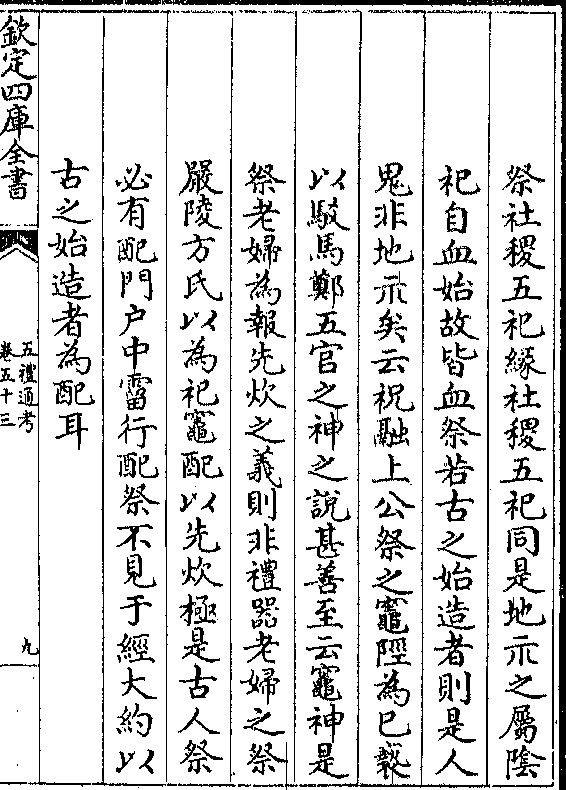 祭社稷五祀緣社稷五祀同是地示之屬陰
祀自血始故皆血祭若古之始造者則是人
鬼非地示矣云祝融上公祭之竈陘為已褻
以駁馬鄭五官之神之說甚善至云竈神是
祭老婦為報先炊之義則非禮器老婦之祭
嚴陵方氏以為祀竈配以先炊極是古人祭
必有配門户中霤行配祭不見于經大約以
古之始造者為配耳
欽定四庫全書
五禮通考
卷五十三
九